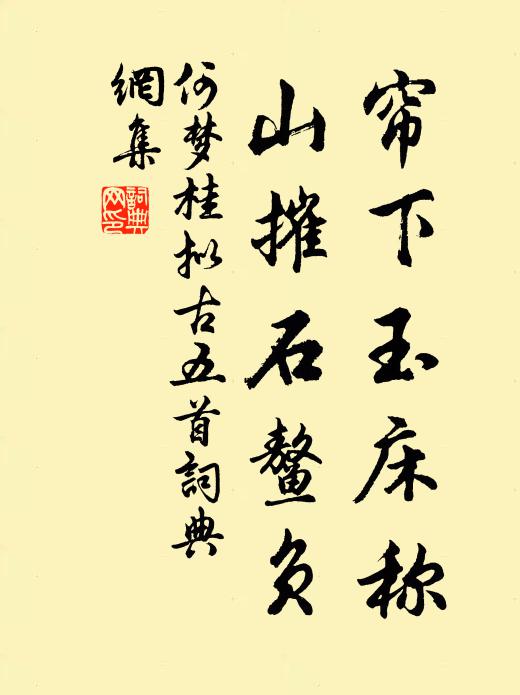 帘下玉床称
山摧石鳌负
何梦桂拟古五首词典
網集
詞典網印